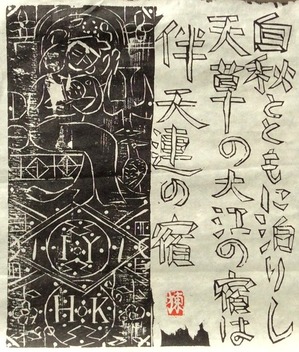 白秋とともに泊りし
天草の大江の宿は
伴天連の宿
IY
HK